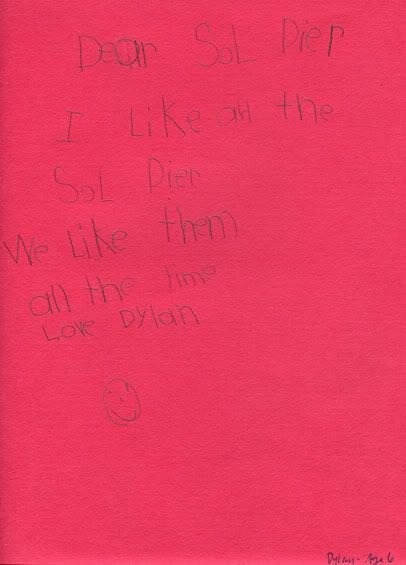 Dear SoL Dier
I Like all the
SoL Dier
We Like them
all the time
Love Dylan
Dylan - Age 6